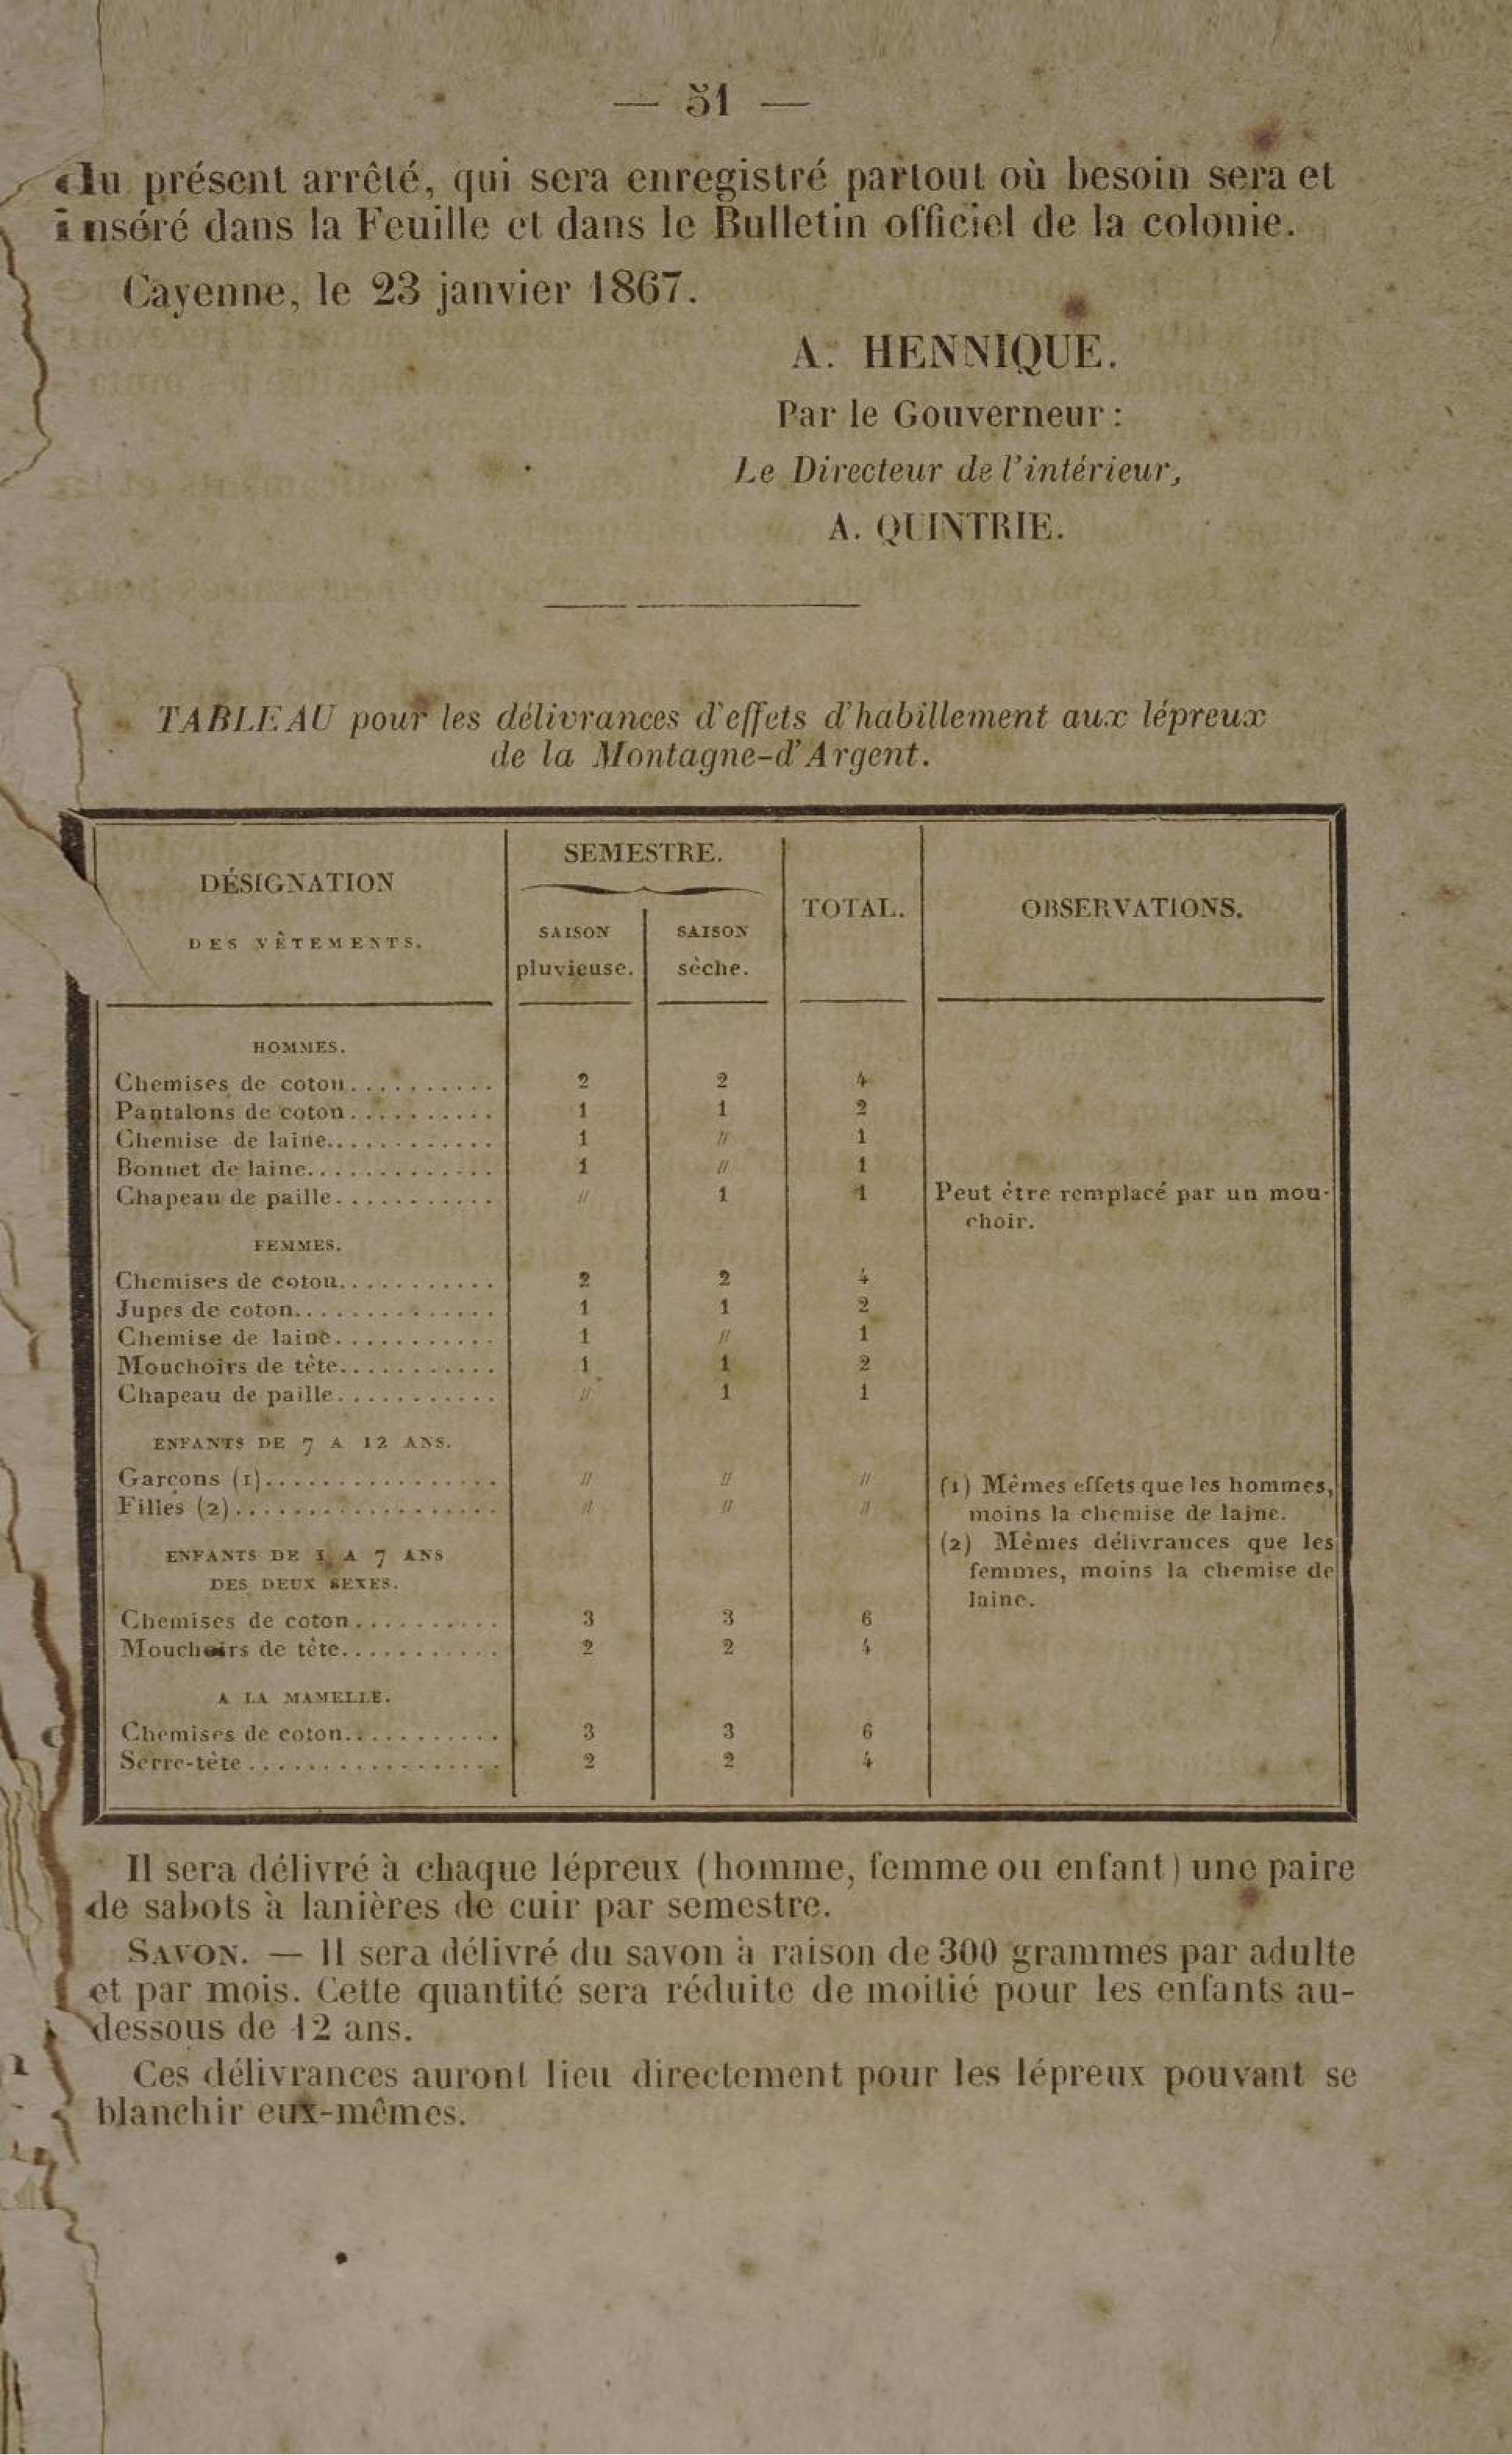 — 51 —
du présent arrêté, qui sera enregistré partout où besoin sera et
inséré dans la Feuille et dans le Bulletin officiel de la colonie.
Cayenne, le 23 janvier 1867.
A. HENNIQUE.
Par le Gouverneur :
Le Directeur de l'intérieur,
A. QUINTRIE.
TABLEAU pour les délivrances d'effets d'habillement aux lépreux
de la Montagne-d'Argent.
DÉSIGNATION
DES VÊTEMENTS.
SEMESTRE.
SAISON
pluvieuse.
SAISON
sèche.
TOTAL.
OBSERVATIONS.
HOMMES.
Chemises de coton.......... 2 2 4
Pantalons de coton.......... 1 1 2
Chemise de laine............ 1 " 1
Bonnet de laine............. 1 " 1
Chapeau de paille........... " 1 1 Peut être remplacé par un mou-
choir.
FEMMES.
Chemises de coton........... 2 2 4
Jupes de coton.............. 1 1 2
Chemise de laine........... 1 " 1
Mouchoirs de tête........... 1 1 2
Chapeau de paille........... " 1 1
ENFANTS DE 7 A 12 ANS.
Garçons (1)................ " " " (1) Mêmes effets que les hommes,
Filles (2).................. " " " moins la chemise de laine.
(2) Mêmes délivrances que les
ENFANTS DE 1 A 7 ANS
femmes, moins la chemise de
DES DEUX SEXES.
laine.
Chemises de coton.......... 3 3 6
Mouchoirs de tête........... 2 2 4
A LA MAMELLE.
Chemises de coton........... 3 3 6
Serre-tête ................. 2 2 4
Il sera délivré à chaque lépreux (homme, femme ou enfant) une paire
de sabots à lanières de cuir par semestre.
SAVON. — Il sera délivré du savon à raison de 300 grammes par adulte
et par mois. Cette quantité sera réduite de moitié pour les enfants au-
dessous de 12 ans.
Ces délivrances auront lieu directement pour les lépreux pouvant se
blanchir eux-mêmes.